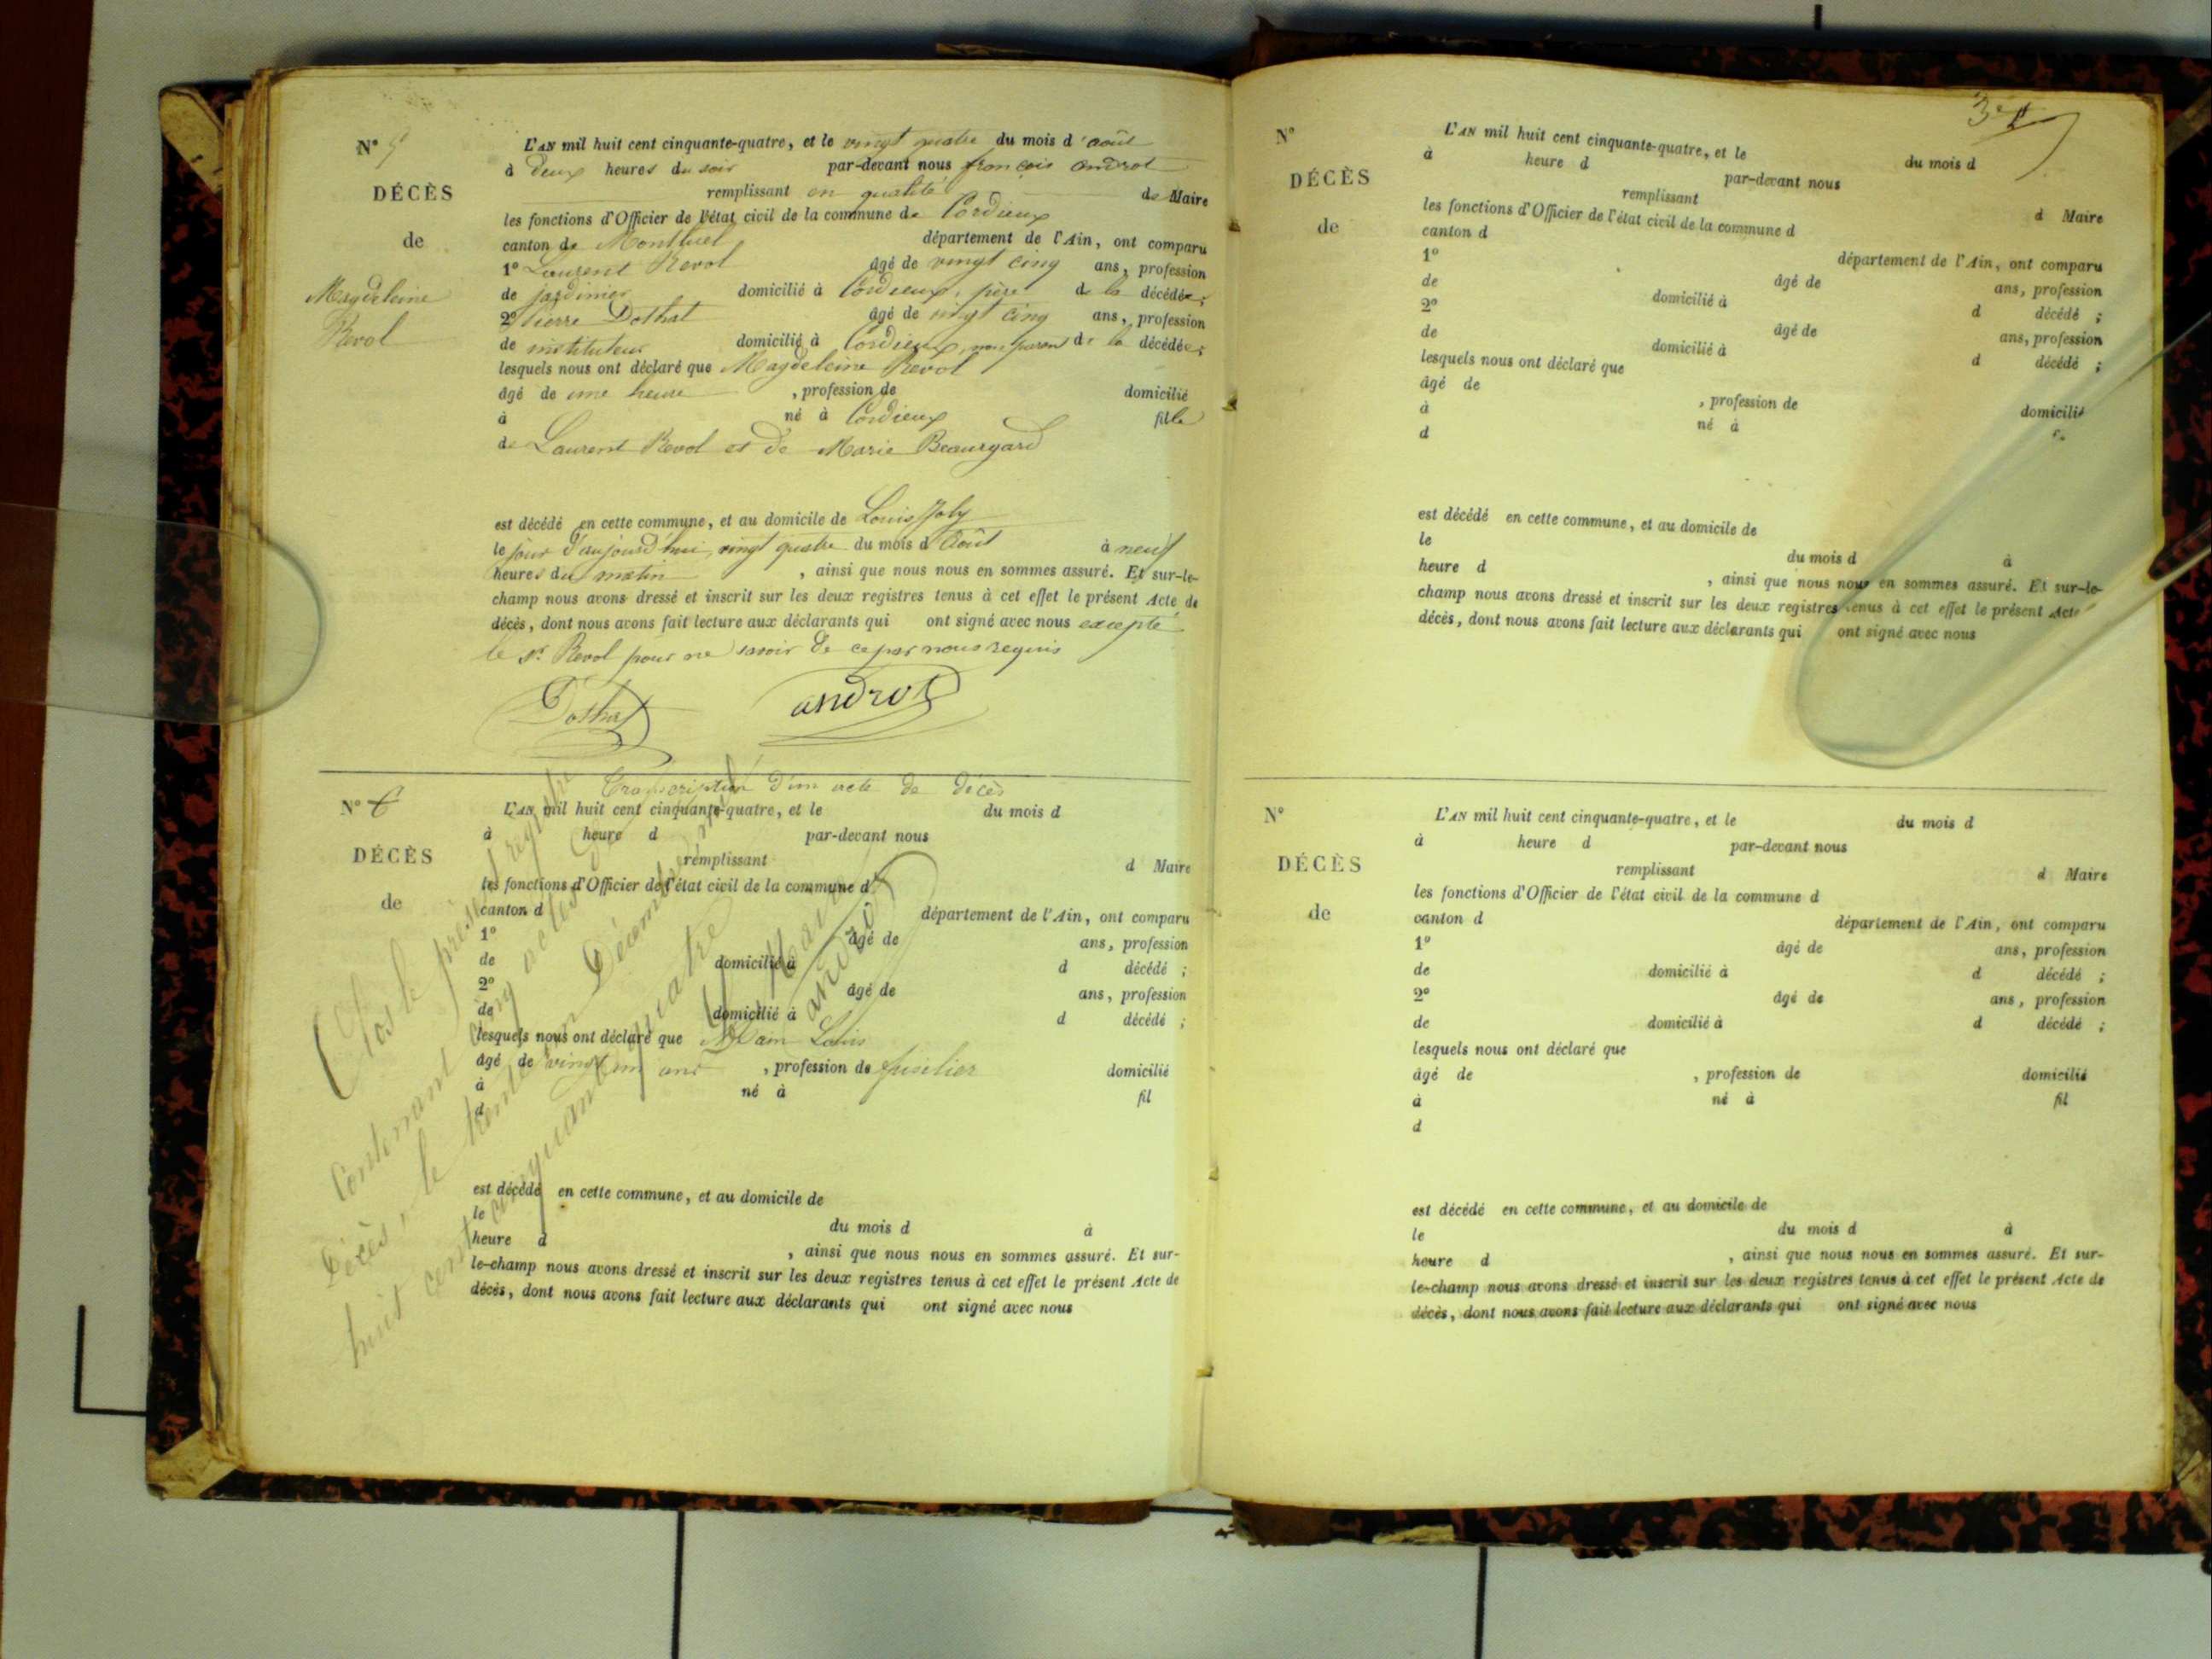 N° 5
DÉCÈS
de
Magdeleine
Revol
L'AN mil huit cent cinquante-quatre, et le vingt quatre du mois d'août
à deux heures du soir par-devant nous françois androt
remplissant en qualité de Maire
les fonctions d'Officier de l'état civil de la commune de Cordieux
canton de Montluel département de l'Ain, ont comparu
1° Laurent Revol âgé de vingt cinq ans, profession
de jardinier domicilié à Cordieux, père de la décédée;
2° Pierre Dothat âgé de vingt cinq ans, profession
de instituteur domicilié à Cordieux, non parent de la décédée;
lesquels nous ont déclaré que Magdeleine Revol
âgé de une heure , profession de domicilié
à né à Cordieux fille
de Laurent Revol et de Marie Beauregard
est décédé en cette commune, et au domicile de Louis Joly
le jour d'aujourd'hui, vingt quatre du mois d'Août à neuf
heures du matin , ainsi que nous nous en sommes assuré. Et sur-le-
champ nous avons dressé et inscrit sur les deux registres tenus à cet effet le présent Acte de
décès, dont nous avons fait lecture aux déclarants qui ont signé avec nous excepté
le sr. Revol pour ne savoir de ce par nous requis
Dothat androt
Transcription d'un acte de décès
N° 6
DÉCÈS
de
L'AN mil huit cent cinquante-quatre, et le du mois d
à heure d par-devant nous
remplissant d Maire
les fonctions d'Officier de l'état civil de la commune d
canton d département de l'Ain, ont comparu
1° âgé de ans, profession
de domicilié à d décédé ;
2° âgé de ans, profession
de domicilié à d décédé ;
lesquels nous ont déclaré que Louis
âgé de vingt un ans , profession de fusilier domicilié
à né à fil
d
est décédé en cette commune, et au domicile de
le du mois d à
heure d , ainsi que nous nous en sommes assuré. Et sur-
le-champ nous avons dressé et inscrit sur les deux registres tenus à cet effet le présent Acte de
décès, dont nous avons fait lecture aux déclarants qui ont signé avec nous
Clos le présent registre
contenant cinq actes de
Décès, le trente un Décembre mil
huit cent cinquante quatre
Le Maire
androt
N°
DÉCÈS
de
L'AN mil huit cent cinquante-quatre, et le du mois d
à heure d par-devant nous
remplissant d Maire
les fonctions d'Officier de l'état civil de la commune d
canton d département de l'Ain, ont comparu
1° âgé de ans, profession
de domicilié à d décédé ;
2° âgé de ans, profession
de domicilié à d décédé ;
lesquels nous ont déclaré que
âgé de , profession de domicilié
à né à
d
est décédé en cette commune, et au domicile de
le du mois d à
heure d , ainsi que nous nous en sommes assuré. Et sur-le-
champ nous avons dressé et inscrit sur les deux registres tenus à cet effet le présent Acte
décès, dont nous avons fait lecture aux déclarants qui ont signé avec nous
N°
DÉCÈS
de
L'AN mil huit cent cinquante-quatre, et le du mois d
à heure d par-devant nous
remplissant d Maire
les fonctions d'Officier de l'état civil de la commune d
canton d département de l'Ain, ont comparu
1° âgé de ans, profession
de domicilié à d décédé ;
2° âgé de ans, profession
de domicilié à d décédé ;
lesquels nous ont déclaré que
âgé de , profession de domicilié
à né à fil
d
est décédé en cette commune, et au domicile de
le du mois d à
heure d , ainsi que nous nous en sommes assuré. Et sur-
le-champ nous avons dressé et inscrit sur les deux registres tenus à cet effet le présent Acte de
décès, dont nous avons fait lecture aux déclarants qui ont signé avec nous